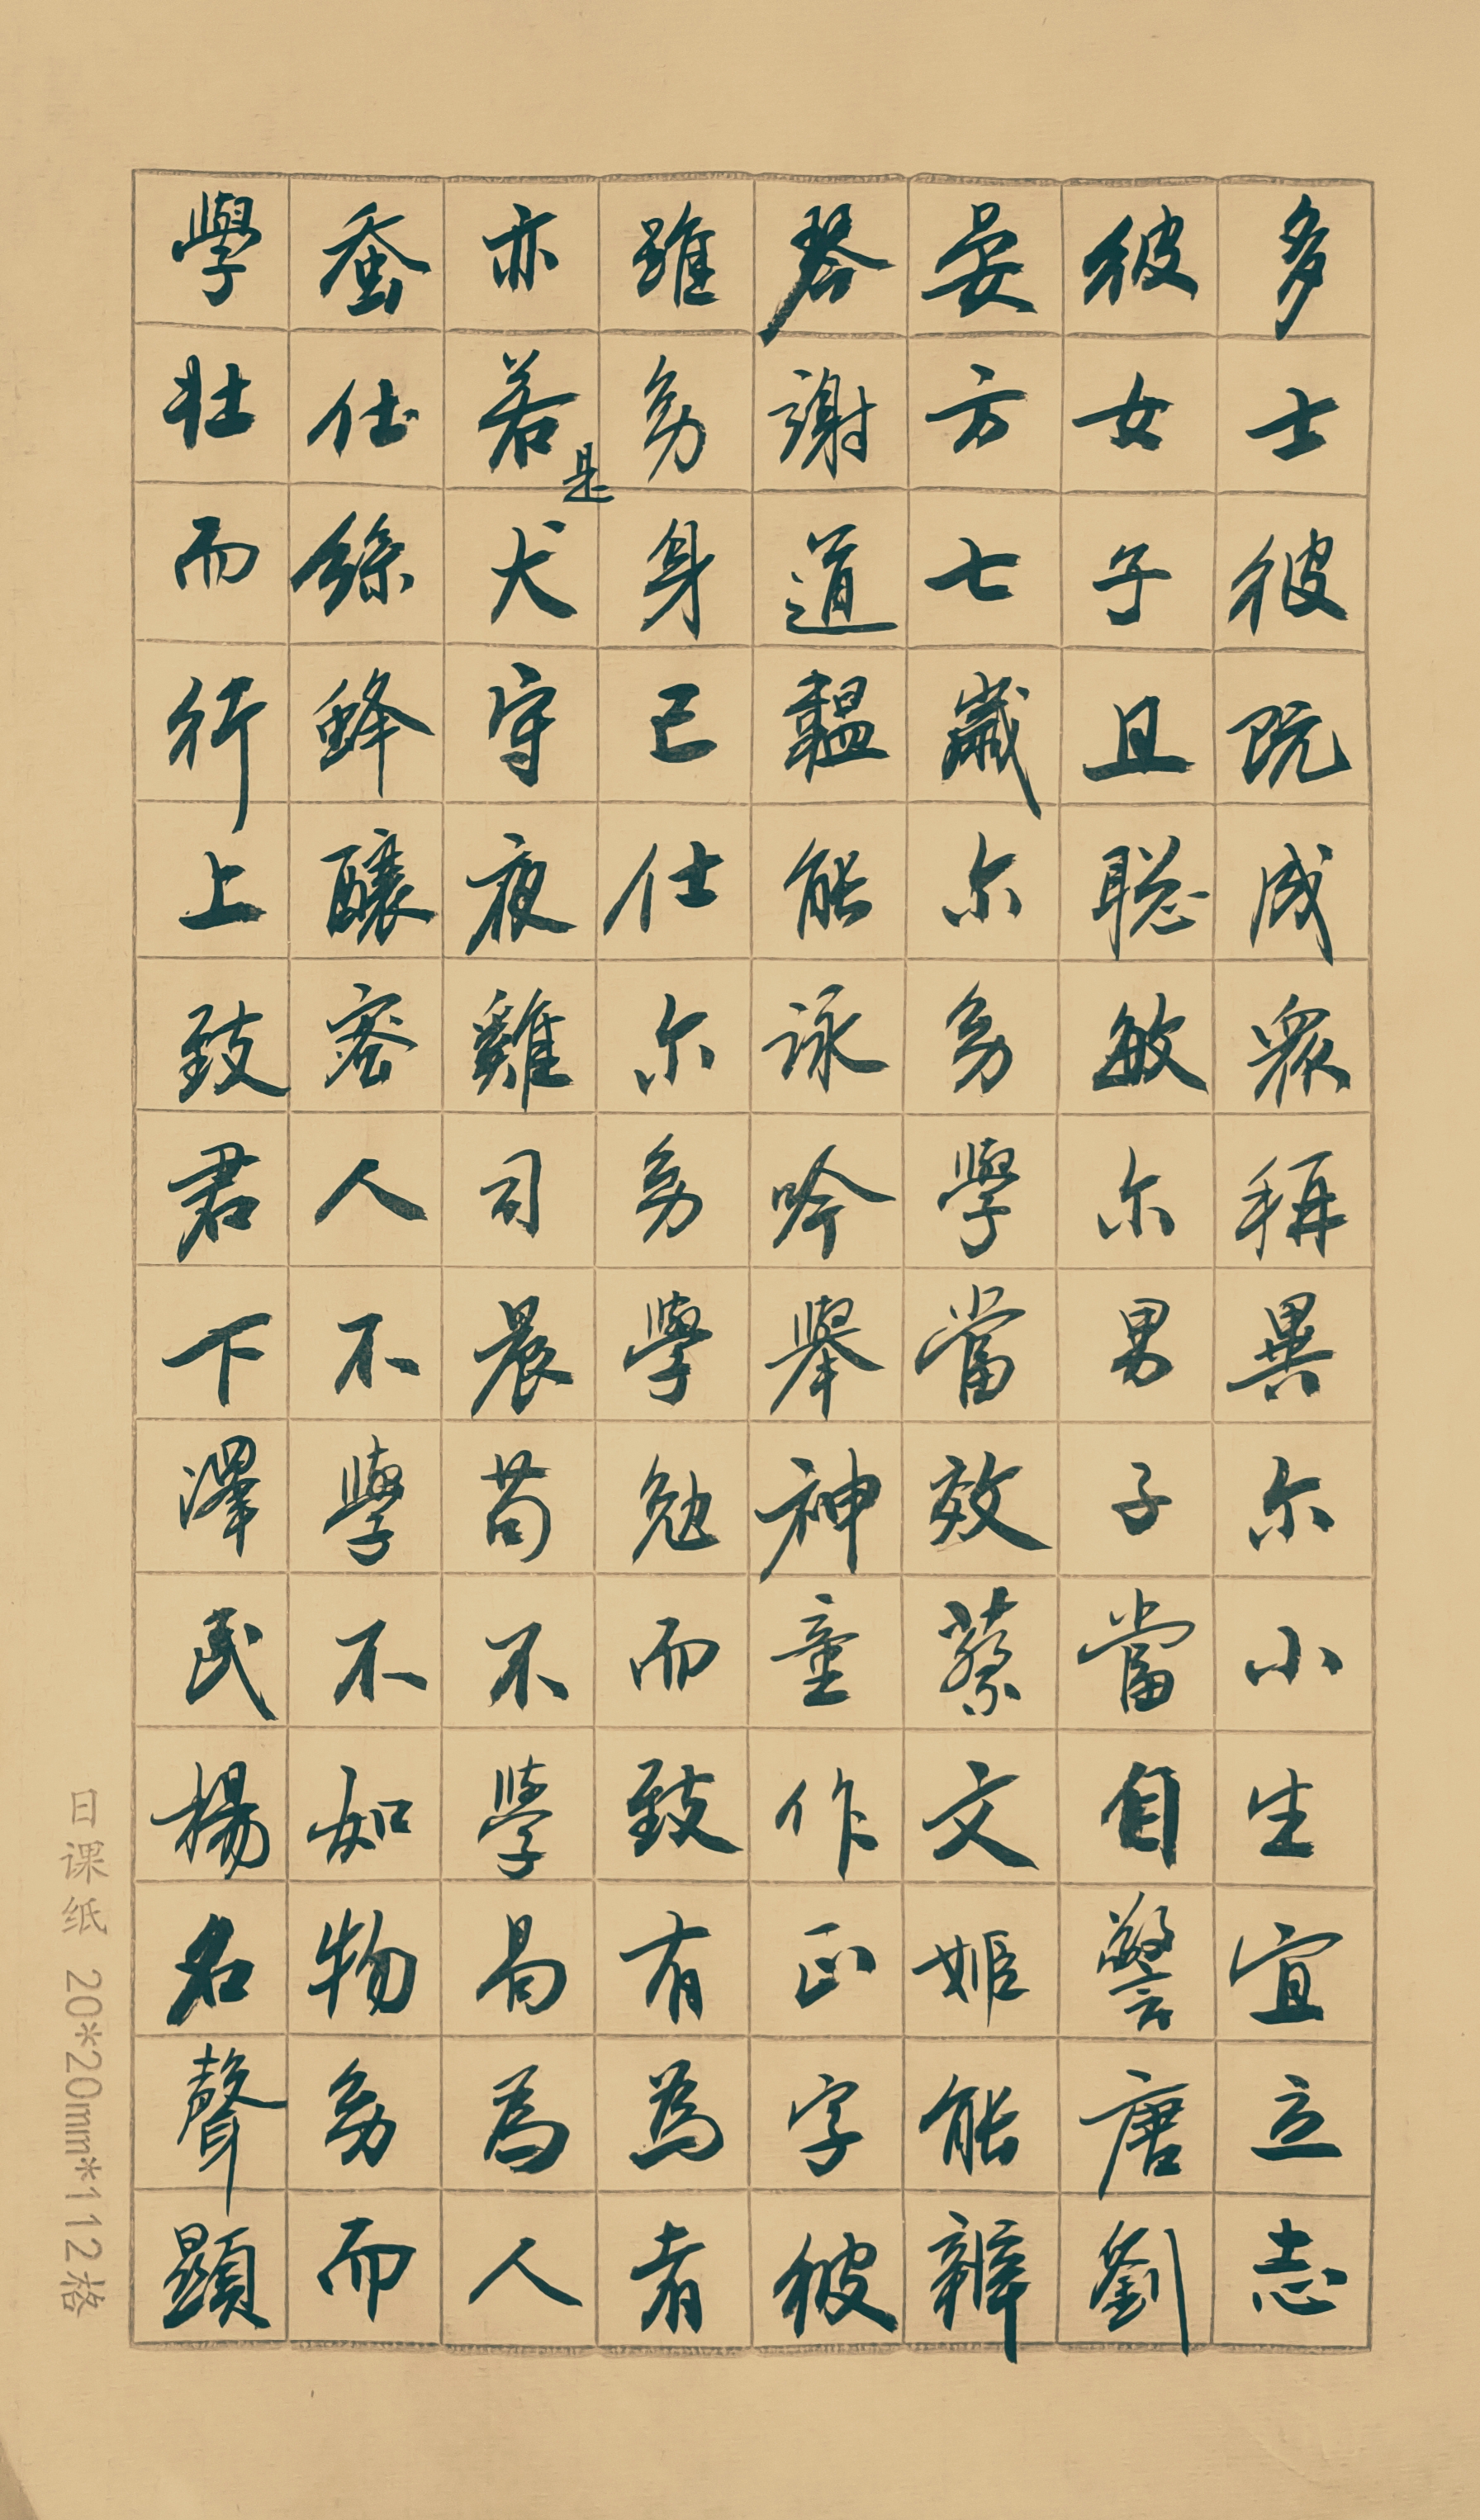 多士彼既成眾稱異尔小生宜立志
彼女子且聡敏尔男子當自警唐劉
晏方七歲尔幼學當效蔡文姬能辨
琴謝道韞能詠吟舉神童作正字彼
雖幼身己仕尔幼學勉而致有為者
亦若是犬守夜雞司晨苟不學曷為人
蚕仕絲蜂釀蜜人不學不如物幼而
學壯而行上致君下澤民揚名聲顯
日课纸 20*20mm*112格